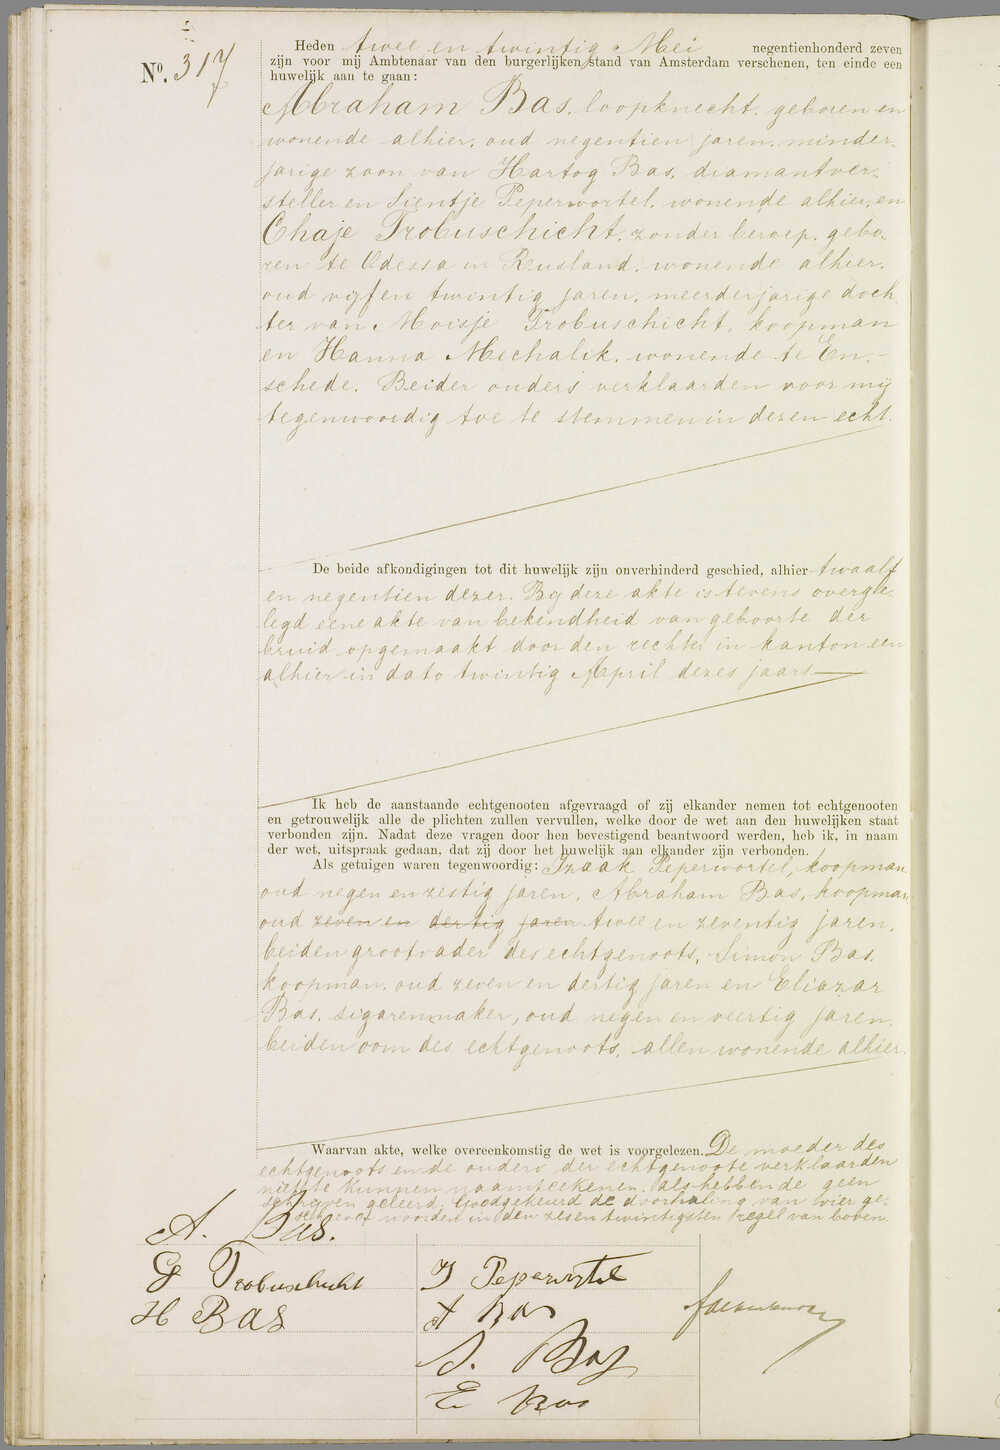 Nº. 317
Heden twee en twintig Mei negentienhonderd zeven
zijn voor mij Ambtenaar van den burgerlijken stand van Amsterdam verschenen, ten einde een
huwelijk aan te gaan:
Abraham Bas, loopknecht, geboren en
wonende alhier, oud negentien jaren, minder-
jarige zoon van Hartog Bas, diamantver-
steller en Sientje Peperwortel, wonende alhier, en
Chaje Trobuschicht, zonder beroep, gebo-
ren te Odessa in Rusland, wonende alhier,
oud vijf en twintig jaren, meerderjarige doch
ter van Moisje Trobuschicht, koopman
en Hanna Mechalik, wonende te En-
schede. Beider ouders verklaarden voor mij
tegenwoordig toe te stemmen in dezen echt.
De beide afkondigingen tot dit huwelijk zijn onverhinderd geschied, alhier twaalf
en negentien dezer. Bij deze akte is tevens overge-
legd eene akte van bekendheid van geboorte der
bruid opgemaakt door den rechter in kanton een
alhier in dato twintig April dezes jaars
Ik heb de aanstaande echtgenooten afgevraagd of zij elkander nemen tot echtgenooten
en getrouwelijk alle de plichten zullen vervullen, welke door de wet aan den huwelijken staat
verbonden zijn. Nadat deze vragen door hen bevestigend beantwoord werden, heb ik, in naam
der wet, uitspraak gedaan, dat zij door het huwelijk aan elkander zijn verbonden.
Als getuigen waren tegenwoordig: Izaak Peperwortel, koopman,
oud negen en zestig jaren, Abraham Bas, koopman,
oud zeven en dertig jaren twee en zeventig jaren,
beiden grootvader des echtgenoots, Simon Bas,
koopman, oud zeven en dertig jaren en Eliazar
Bas, sigarenmaker, oud negen en veertig jaren,
beiden oom des echtgenoots, allen wonende alhier.
Waarvan akte, welke overeenkomstig de wet is voorgelezen. De moeder des
echtgenoots en de ouders der echtgenoote verklaarden
niet te kunnen naamteekenen als hebbende geen
schrijven geleerd. Goedgekeurd de doorhaling van vier ge-
schreven woorden in den zesentwintigsten regel van boven.
A. Bas.
C Trobuschicht
H BAS
I Peperwortel
A Bas
S. Bas
E Bas